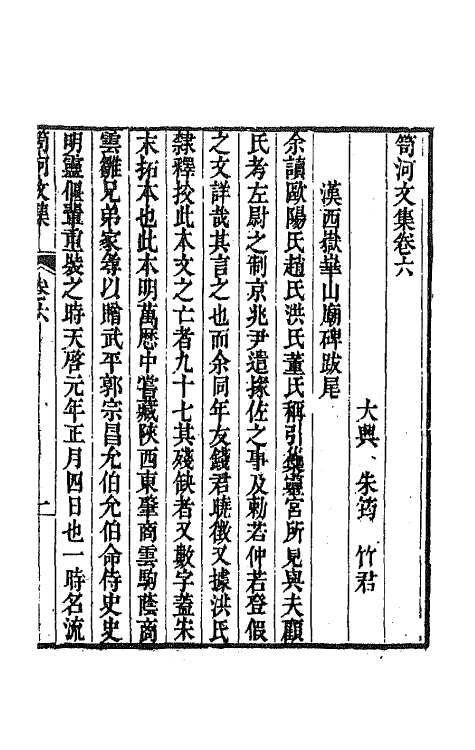 笥河文集卷六
大興 朱筠 竹君
漢西嶽華山廟碑跋尾
余讀歐陽氏趙氏洪氏董氏稱引集靈宮所見與夫顧
氏考左尉之制京兆尹遣掾佐之事及勅若仲若登假
之文詳哉其言之也而余同年友錢君曉徵又據洪氏
隸釋挍此本文之亡者九十七其殘缺者又數字蓋宋
末拓本也此本明萬歷中嘗藏陜西東肇商雲駒蔭商
雲雛兄弟家尋以贈武平郭宗昌允伯允伯命侍史史
明靈偃輩重裝之時天啓元年正月四日也一時名流
笥河文集
卷六
一